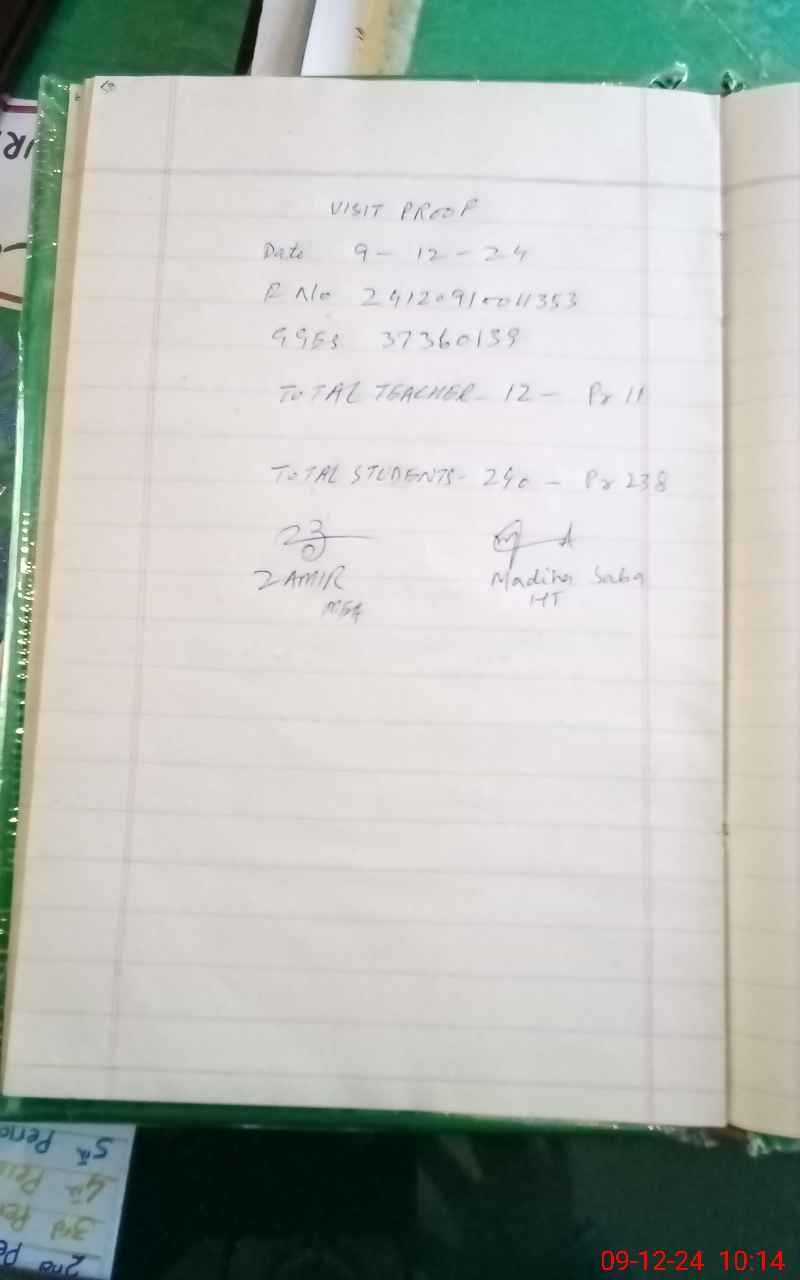 VISIT PROOF
Date 9 - 12 - 24
R No 24120910011353
GGES 37360139
TOTAL TEACHER - 12 - Pr 11
TOTAL STUDENTS - 240 - Pr 238
ZAMIR
MEA
Madiha Saba
HT
5th Perio
4th Per
3rd Per
2nd Pe
09-12-24 10:14